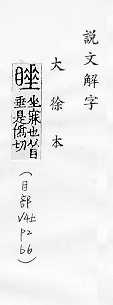 說文解字
大徐本
睡
坐寐也从目
垂是偽切
(目部
V4上
P2
bb)